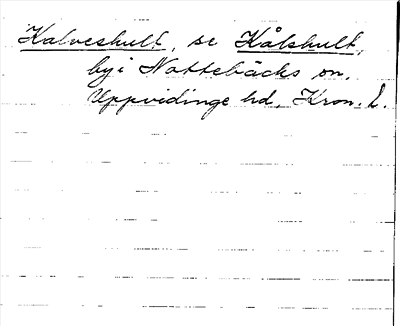 Kalveshult, se Kålshult,
by i Nottebäcks sn,
Uppvidinge hd, Kron. l.